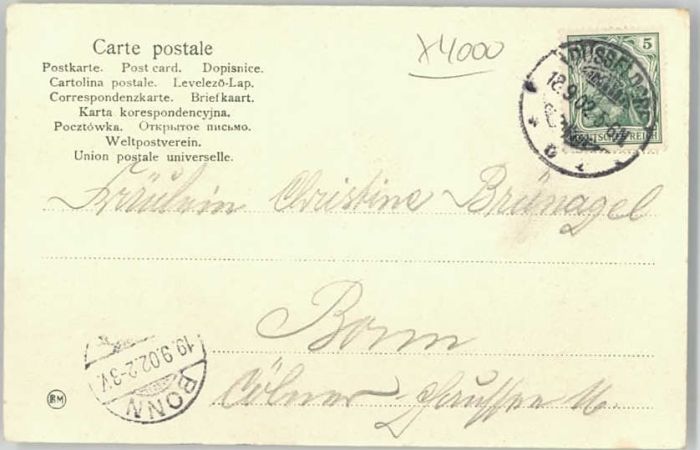 Carte postale
Postkarte. Post card. Dopisnice.
Cartolina postale. Levelező-Lap.
Correspondenzkarte. Briefkaart.
Karta korespondencyjna.
Pocztówka. Открытое письмо.
Weltpostverein.
Union postale universelle.
X4000
5
DÜSSELDORF
18.9.02.5-6N
DEUTSCHES REICH
Fräulein Christine Brünagel
Bonn
Cölner
19.9.02.2-3V.
BONN
BM